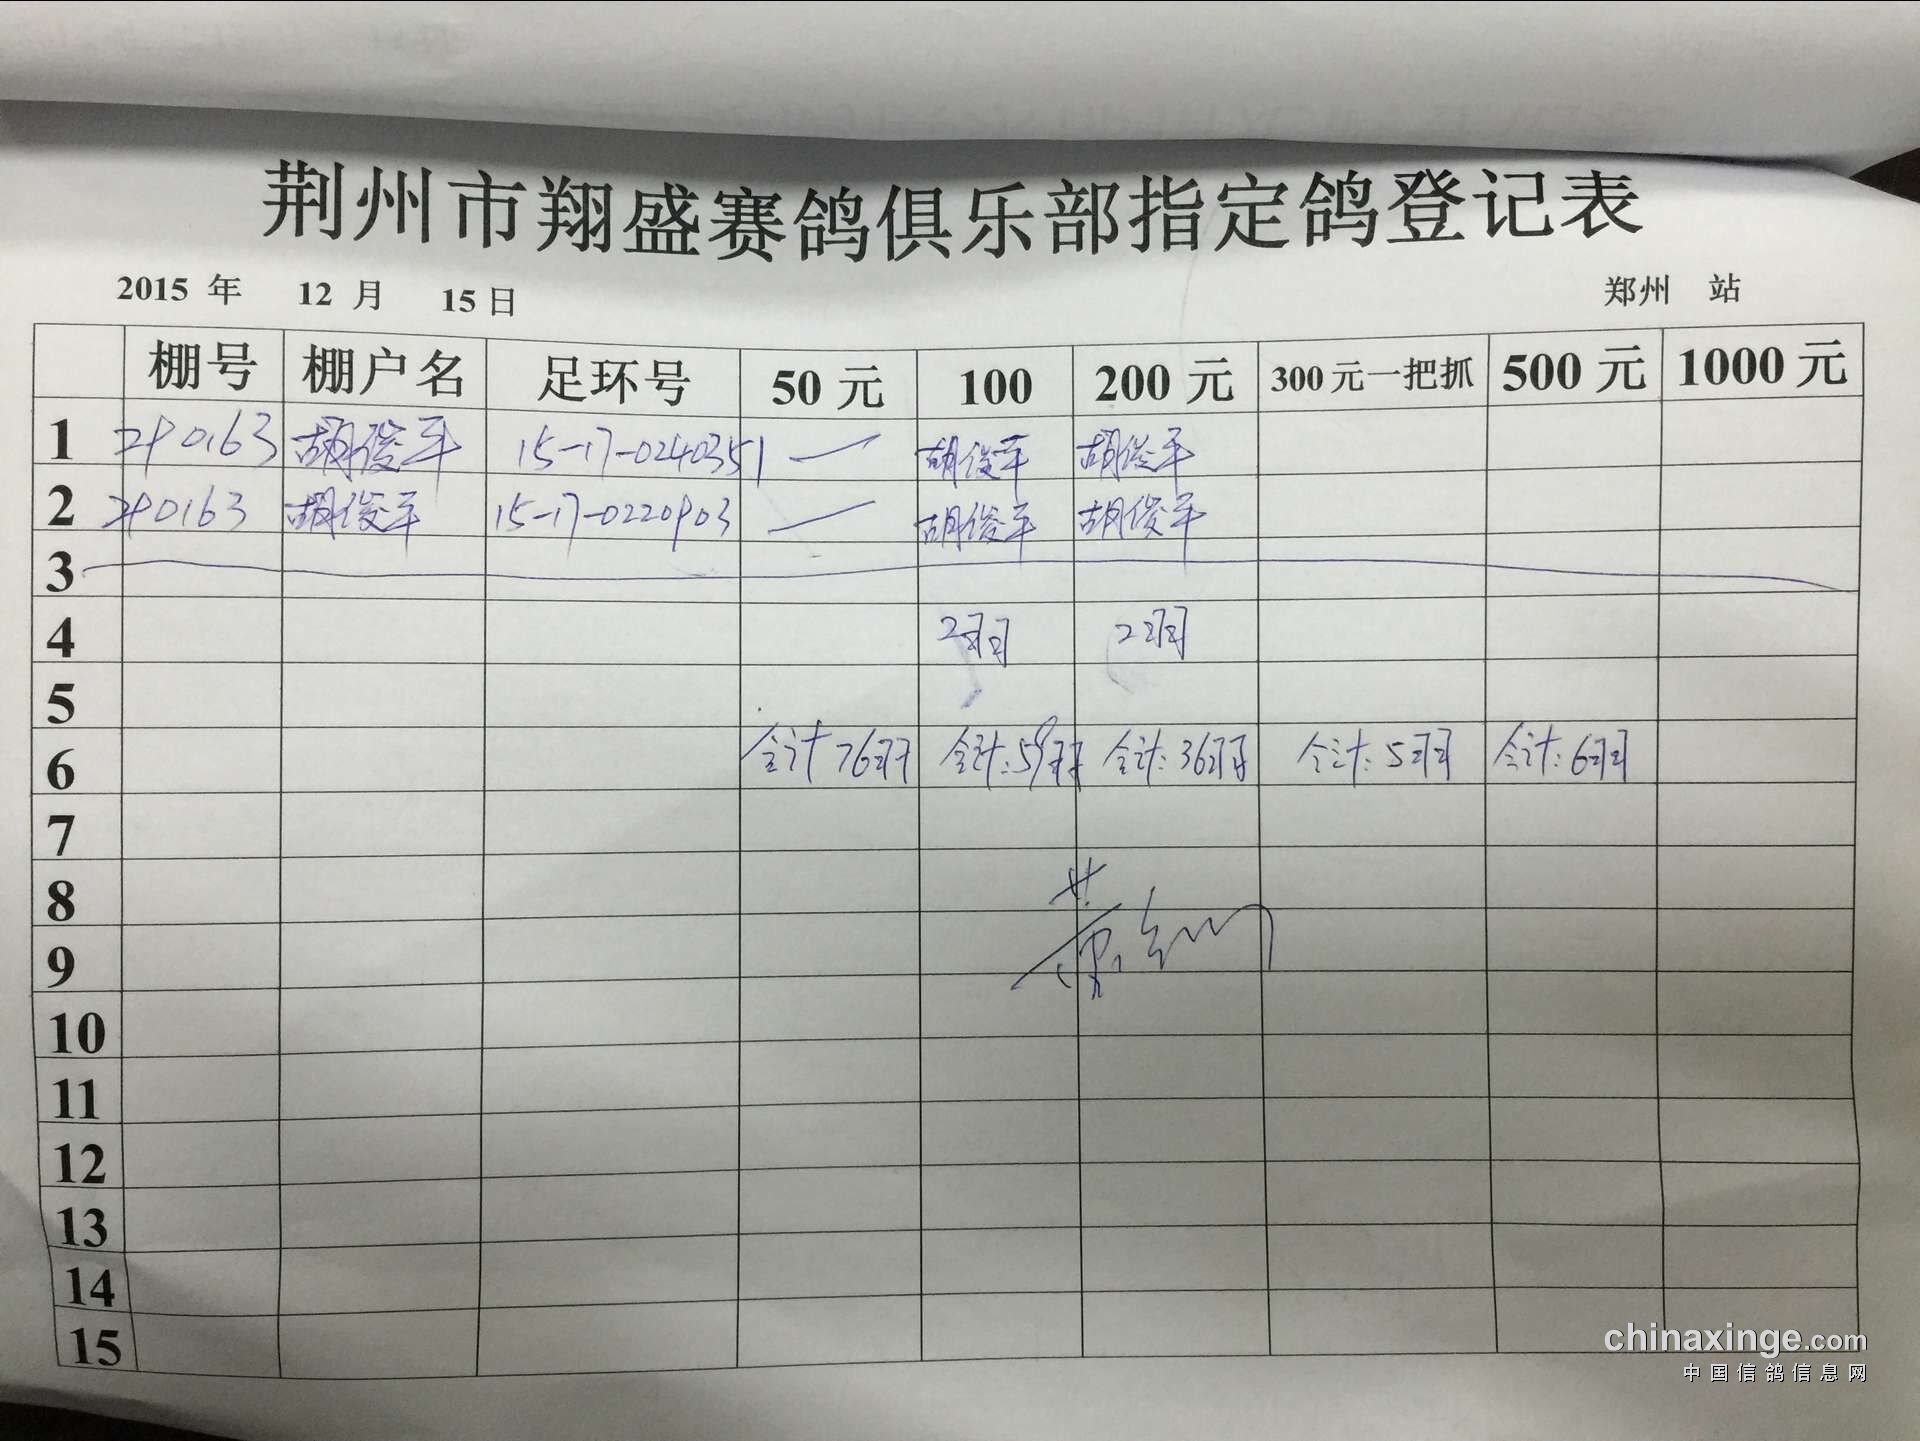 荆州市翔盛赛鸽俱乐部指定鸽登记表
2015 年 12 月 15 日 郑州 站
棚号 棚户名 足环号 50 元 100 200 元 300 元一把抓 500 元 1000 元
1 290163 胡俊平 15-17-0240351 胡俊平 胡俊平
2 290163 胡俊平 15-17-0220903 胡俊平 胡俊平
3
4 2羽 2羽
5
6 合计 76羽 合计:59羽 合计:36羽 合计:5羽 合计:6羽
7
8
9
10
11
12
13
14
15
chinaxinge.com
中国信鸽信息网